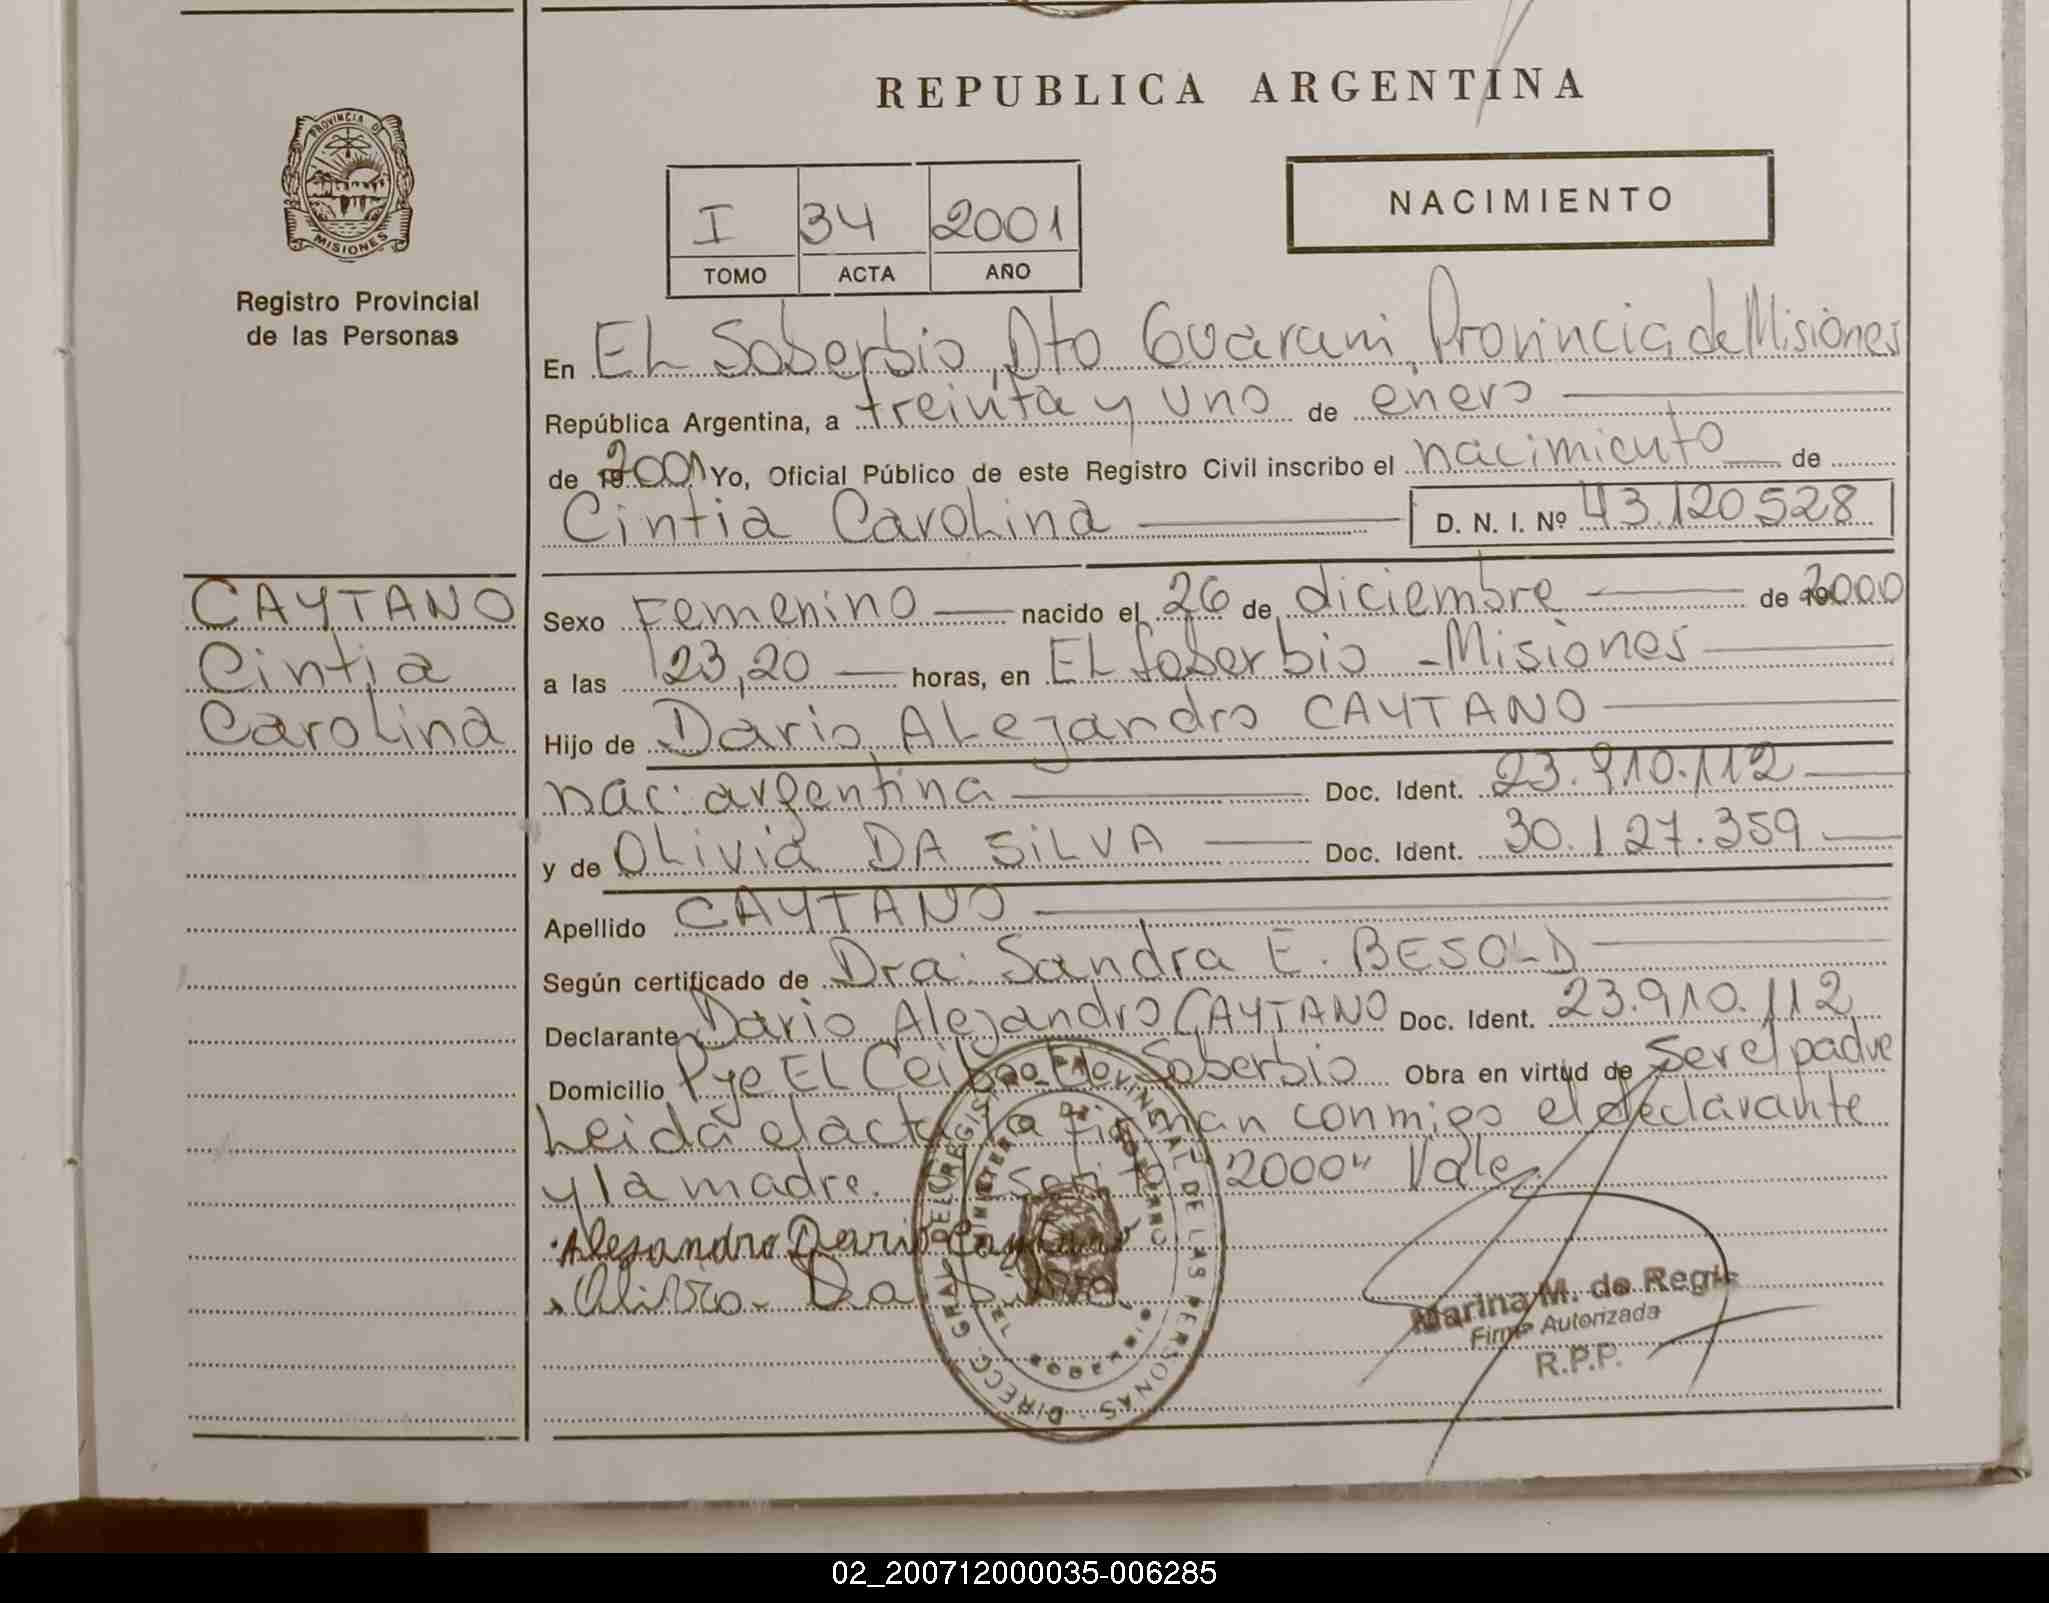 REPUBLICA ARGENTINA
PROVINCIA D
MISIONES
Registro Provincial
de las Personas
NACIMIENTO
I 34 2001
TOMO ACTA AÑO
En EL Soberbio, Dto Guarani, Provincia de Misiones
República Argentina, a treinta y uno de enero
de 2001 Yo, Oficial Público de este Registro Civil inscribo el nacimiento de
Cintia Carolina D. N. I. Nº 43.120528
CAYTANO
Cintia
Carolina
Sexo Femenino nacido el 26 de diciembre de 2000
a las 23,20 horas, en EL Soberbio - Misiones
Hijo de Dario Alejandro CAYTANO
nac. argentina Doc. Ident. 23.910.112
y de OLivia DA SiLVA Doc. Ident. 30.127.359
Apellido CAYTANO
Según certificado de Dra. Sandra E. BESOLD
Declarante Dario Alejandro CAYTANO Doc. Ident. 23.910.112
Domicilio Pje EL Ceibo El Soberbio Obra en virtud de ser el padre
Leida el acta la firman conmigo el declarante
y la madre. 2000" Vale.
Alejandro Dario Caytano
Olivia Da Silva
DIRECC. GRAL. DEL REGISTRO PROVINCIAL DE LAS PERSONAS
MINISTERIO DE GOBIERNO
Marina M. de Regis
Firma Autorizada
R.P.P.
02_200712000035-006285